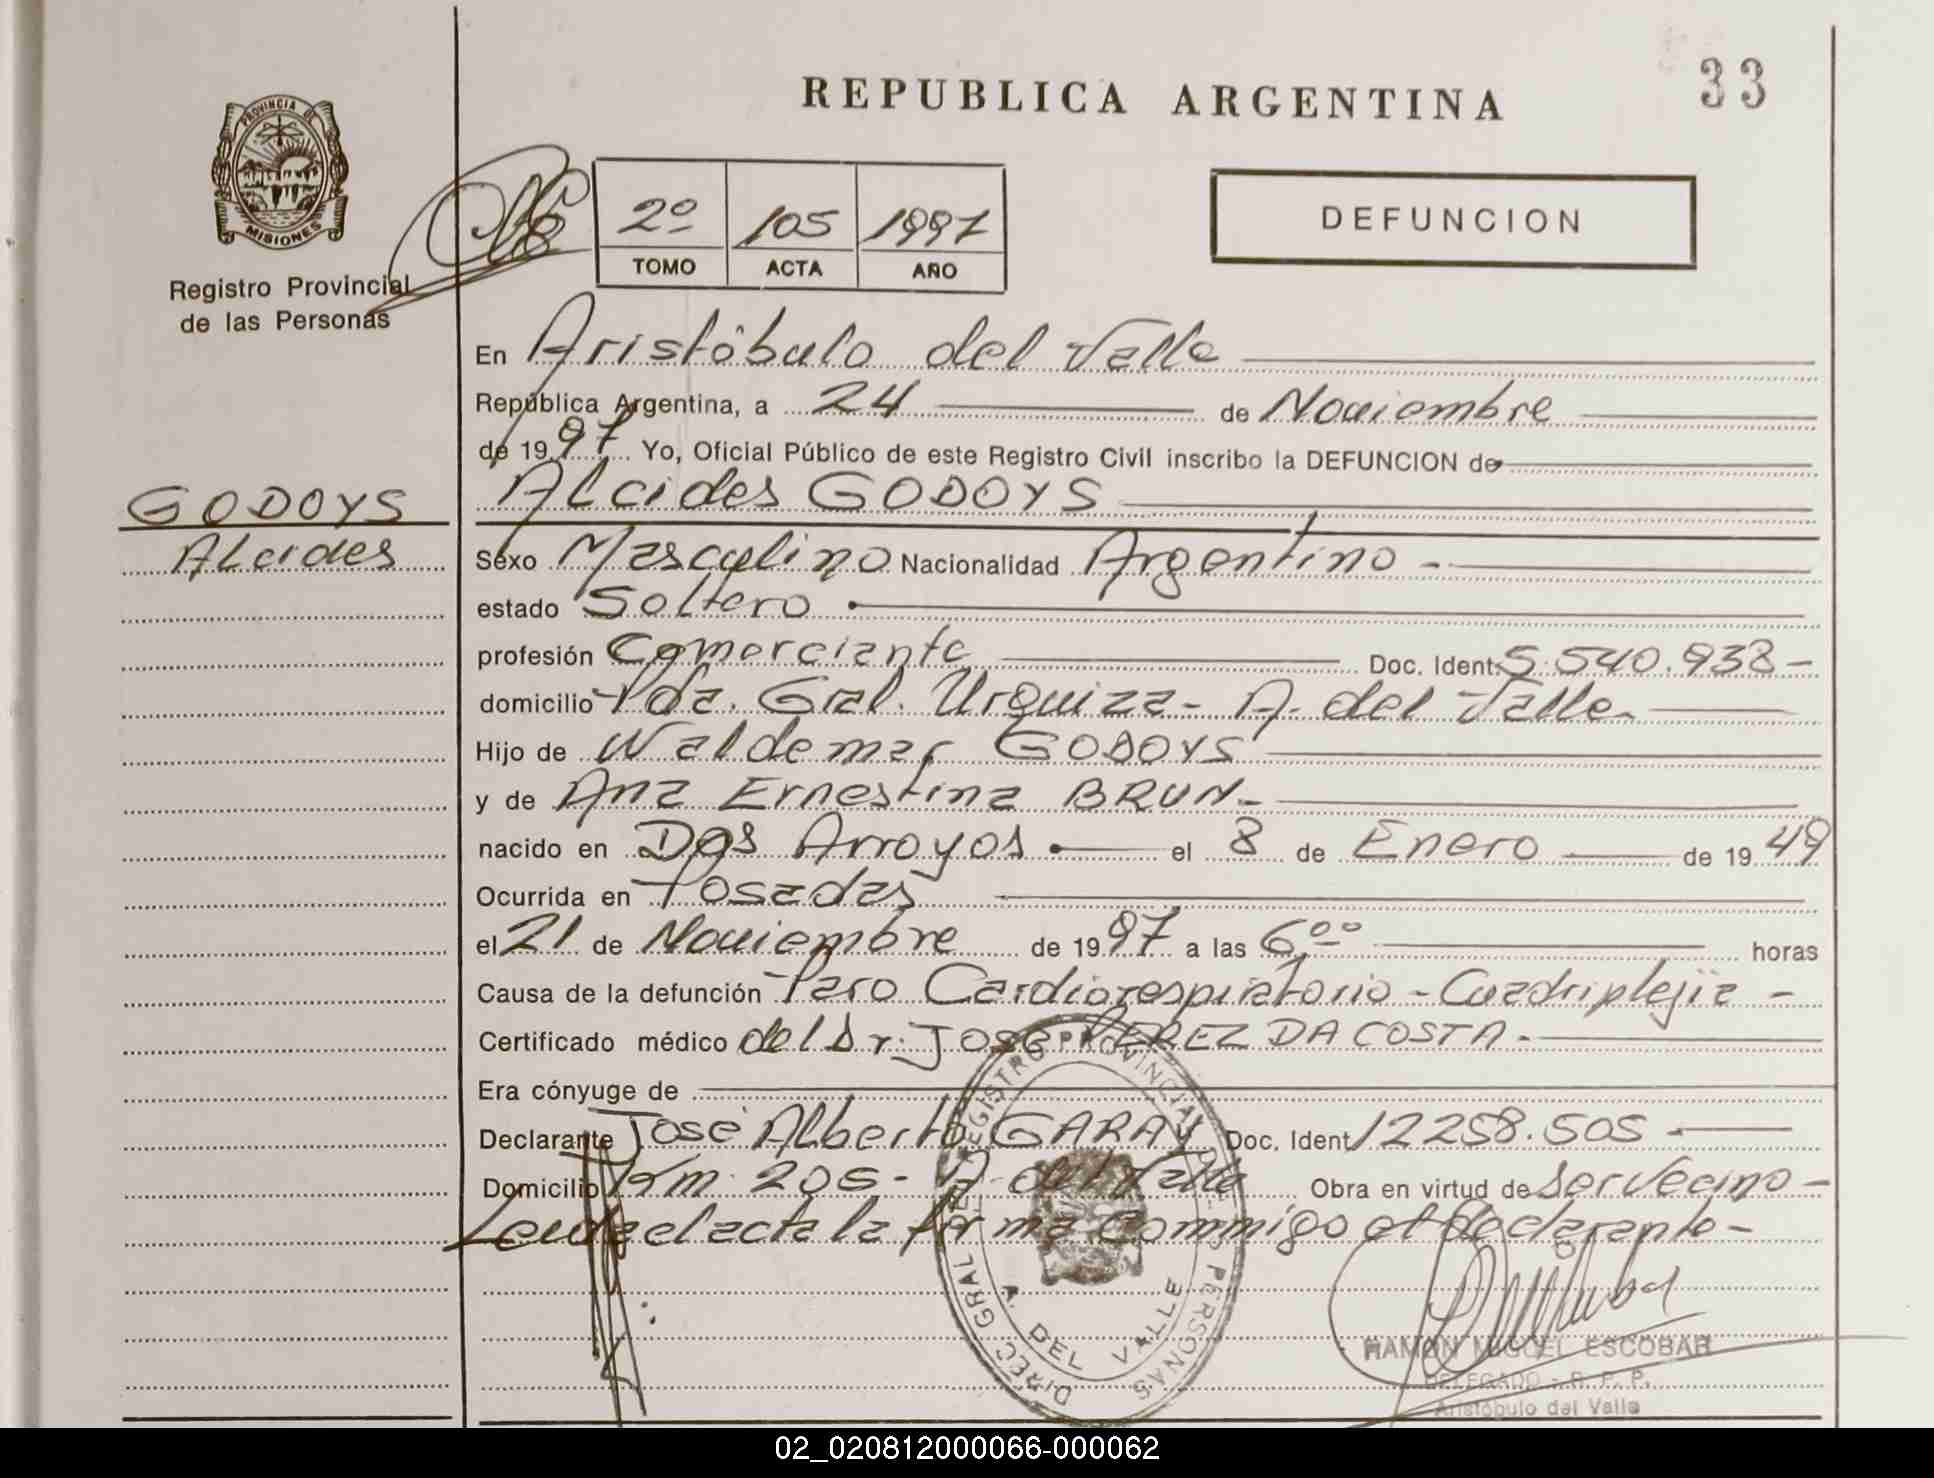 REPUBLICA ARGENTINA
33
PROVINCIA DE
MISIONES
Registro Provincial
de las Personas
2º 105 1997
TOMO ACTA AÑO
DEFUNCION
En Aristóbulo del Valle
República Argentina, a 24 de Noviembre
de 1997 Yo, Oficial Público de este Registro Civil inscribo la DEFUNCION de
Alcides GODOYS
GODOYS
Alcides
Sexo Masculino Nacionalidad Argentino -
estado Soltero
profesión Comerciante Doc. Ident. 5.540.938-
domicilio Pda. Gral. Urquiza- A. del Valle-
Hijo de Waldemar GODOYS
y de Ana Ernestina BRUN-
nacido en Dos Arroyos el 8 de Enero de 1949
Ocurrida en Posadas
el 21 de Noviembre de 1997 a las 6ºº horas
Causa de la defunción Paro Cardiorespiratorio - Cuadriplejia -
Certificado médico del Dr. José PEREZ DA COSTA -
Era cónyuge de
Declarante José Alberto GARAY Doc. Ident. 12258.505 -
Domicilio Km. 206- A. del Valle Obra en virtud de ser vecino -
Leida el acta la firma commigo el declarante -
DIREC GRAL DEL REGISTRO PROVINCIAL DE LAS PERSONAS
A. DEL VALLE
RAMON MIGUEL ESCOBAR
DELEGADO - R. P. P.
Aristóbulo del Valle
02_020812000066-000062